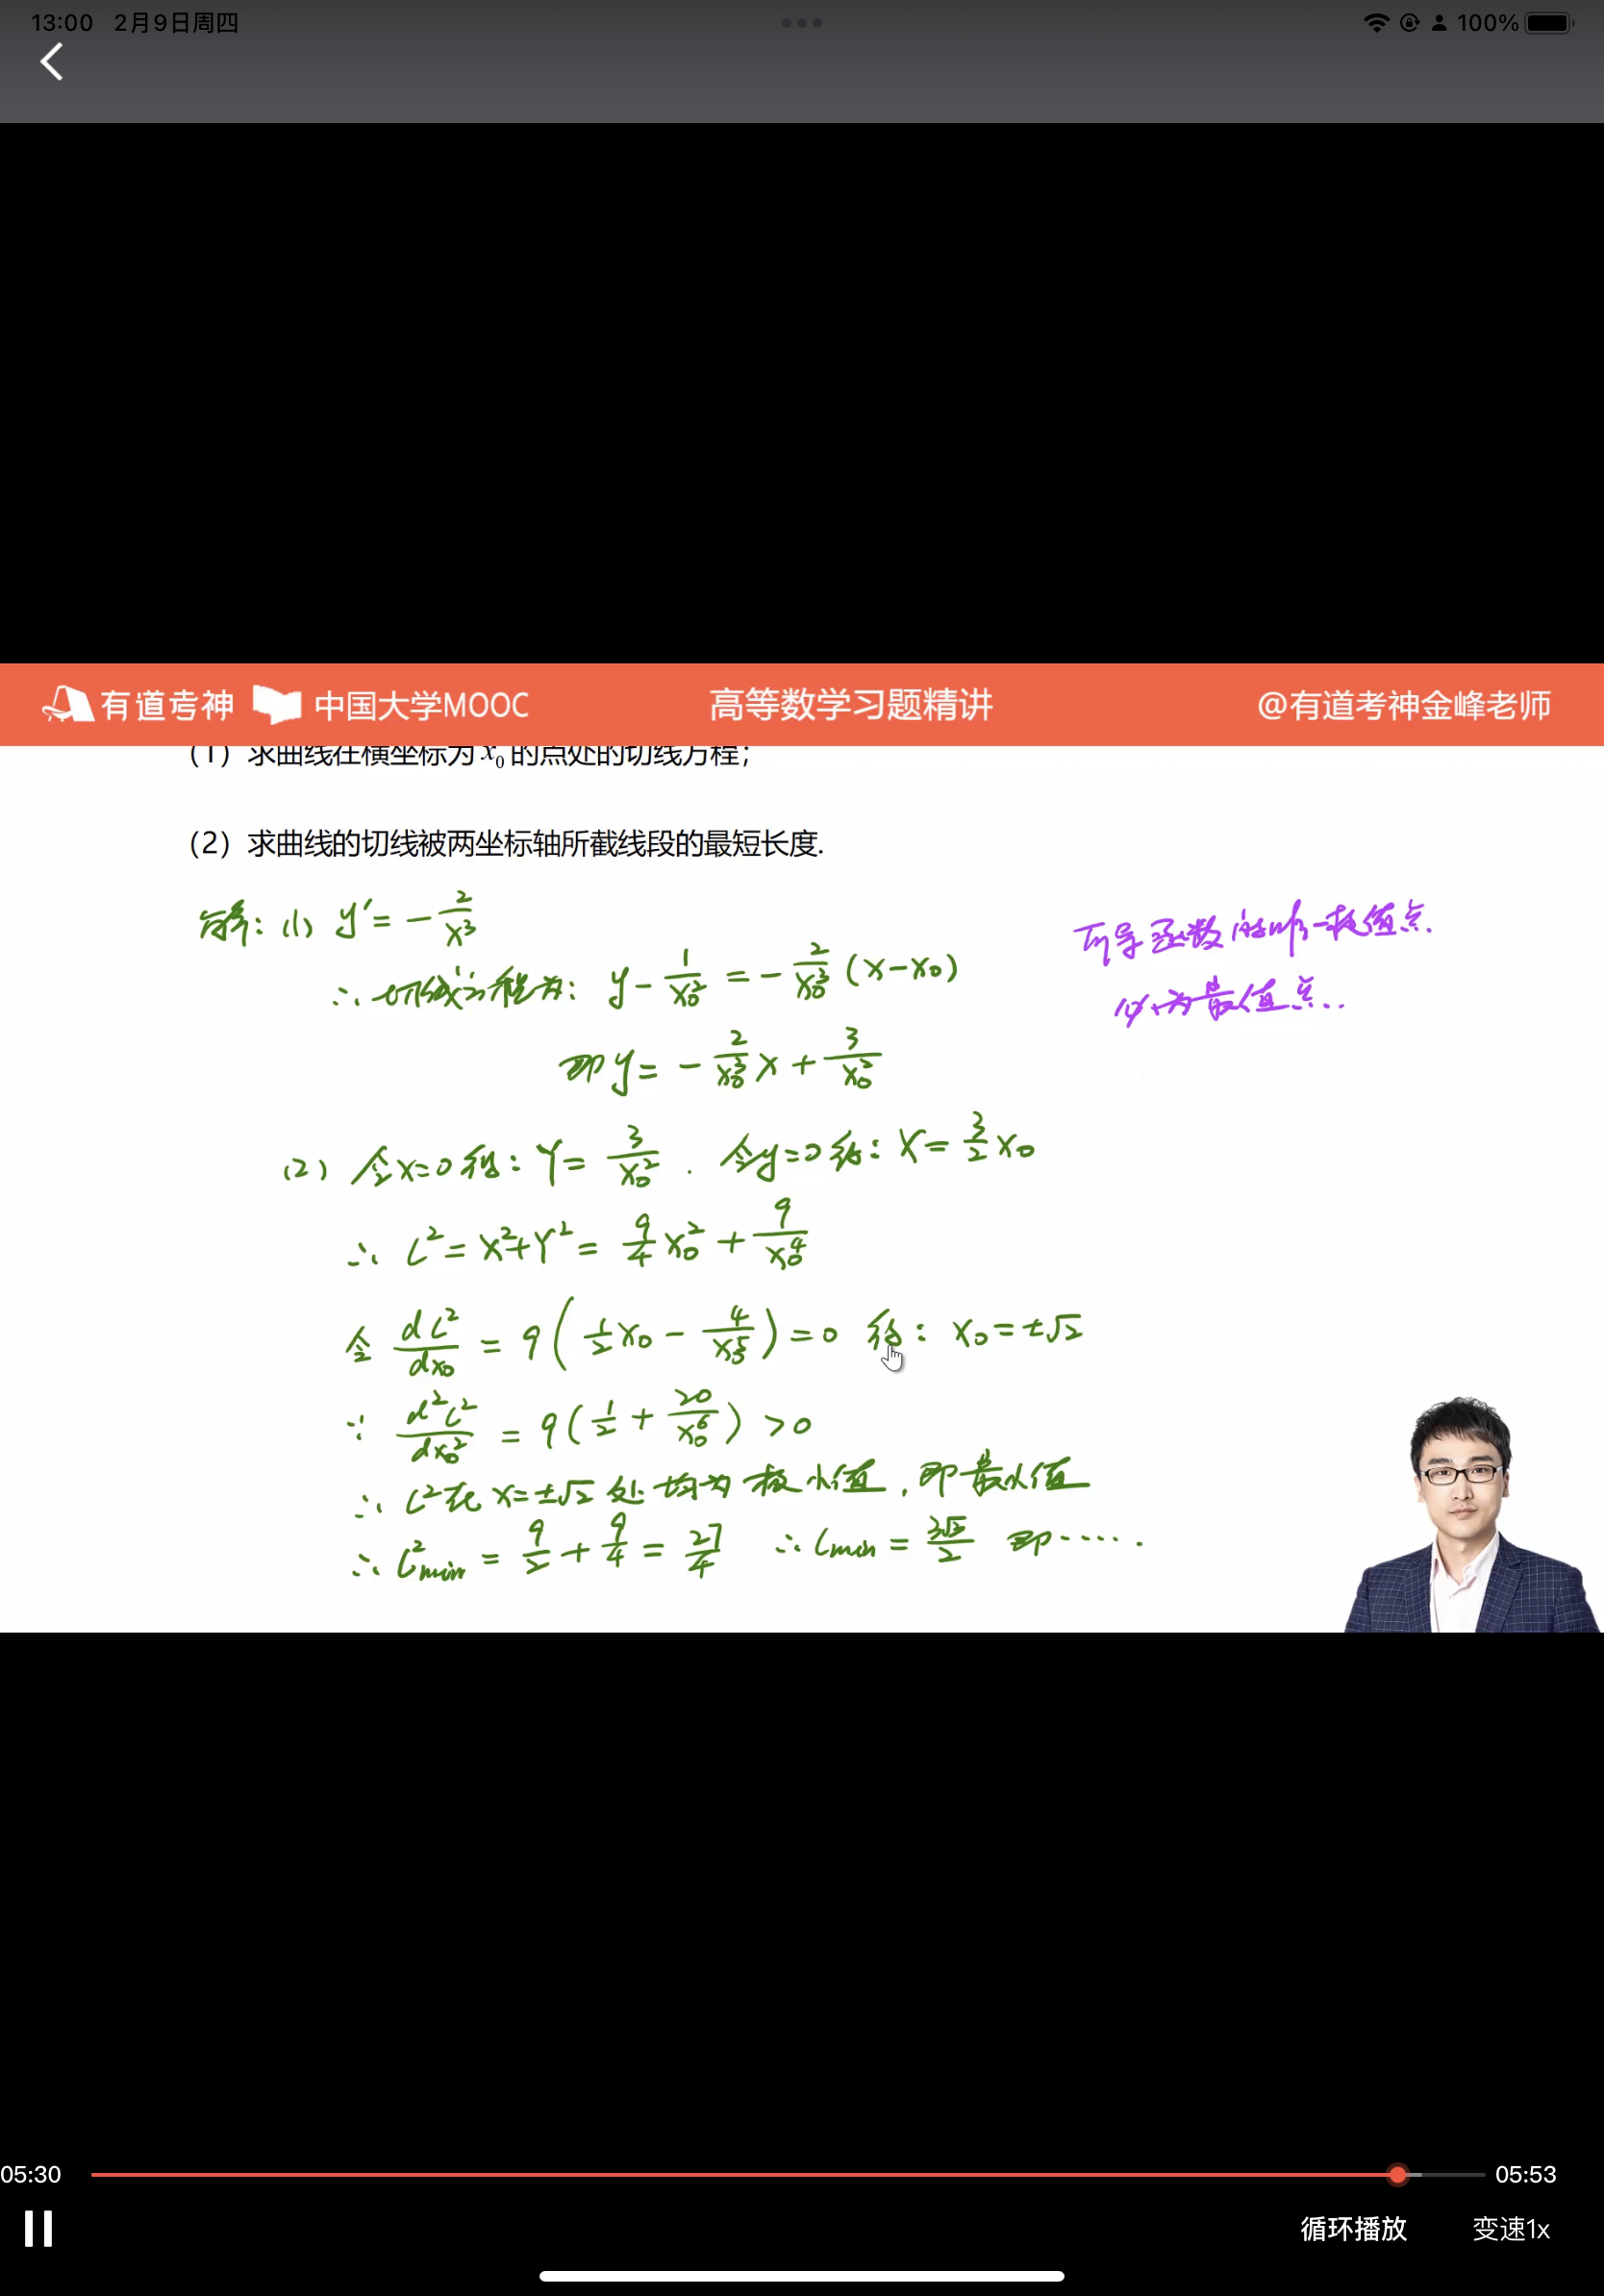 13:00 2月9日周四
100%
有道考神 中国大学MOOC 高等数学习题精讲 @有道考神金峰老师
(1) 求曲线在横坐标为 x₀ 的点处的切线方程;
(2) 求曲线的切线被两坐标轴所截线段的最短长度.
解: (1) y′ = -2/x³
可导函数的唯一极值点.
必为最值点..
∴ 切线方程为: y - 1/x₀² = -2/x₀³ (x-x₀)
即 y = -2/x₀³ x + 3/x₀²
(2) 令x=0得: Y = 3/x₀² . 令y=0得: X = 3/2 x₀
∴ L² = X²+Y² = 9/4 x₀² + 9/x₀⁴
令 dL²/dx₀ = 9(1/2 x₀ - 4/x₀⁵) = 0 得: x₀ = ±√2
∵ d²L²/dx₀² = 9(1/2 + 20/x₀⁶) > 0
∴ L²在 x=±√2 处均为极小值, 即最小值
∴ L²min = 9/2 + 9/4 = 27/4 ∴ Lmin = 3√3/2 即·····.
05:30 05:53
循环播放 变速1x